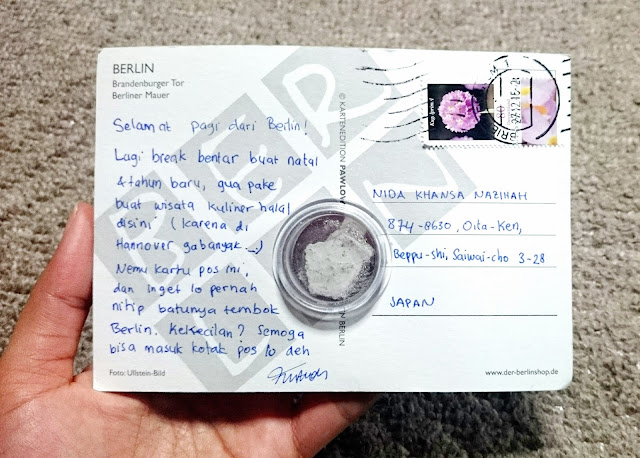 BERLIN
Brandenburger Tor
Berliner Mauer
Selamat pagi dari Berlin!
Lagi break bentar buat natal
& tahun baru, gua pake
buat wisata kuliner halal
disini (karena di
Hannover gabanyak -_-)
Nemu kartu pos ini,
dan inget lo pernah
nitip batunya tembok
Berlin. Kekecilan? Semoga
bisa masuk kotak pos lo deh
Foto: Ullstein-Bild
© KARTENEDITION PAWLOW
BERLIN
BERLIN
NIDA KHANSA NAZIHAH
874-8630, Oita-Ken,
Beppu-shi, Saiwai-cho 3-28
JAPAN
www.der-berlinshop.de